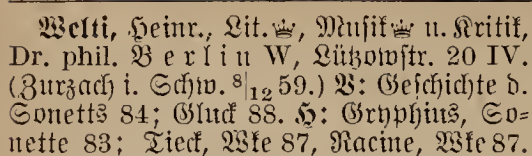 Welti, Heinr., Lit.♕, Musik♕ u. Kritik,
Dr. phil. Berlin W, Lützowstr. 20 IV.
(Zurzach i. Schw. 8|12 59.) V: Geschichte d.
Sonetts 84; Gluck 88. H: Gryphius, So=
nette 83; Tieck, Wke 87, Racine, Wke 87.